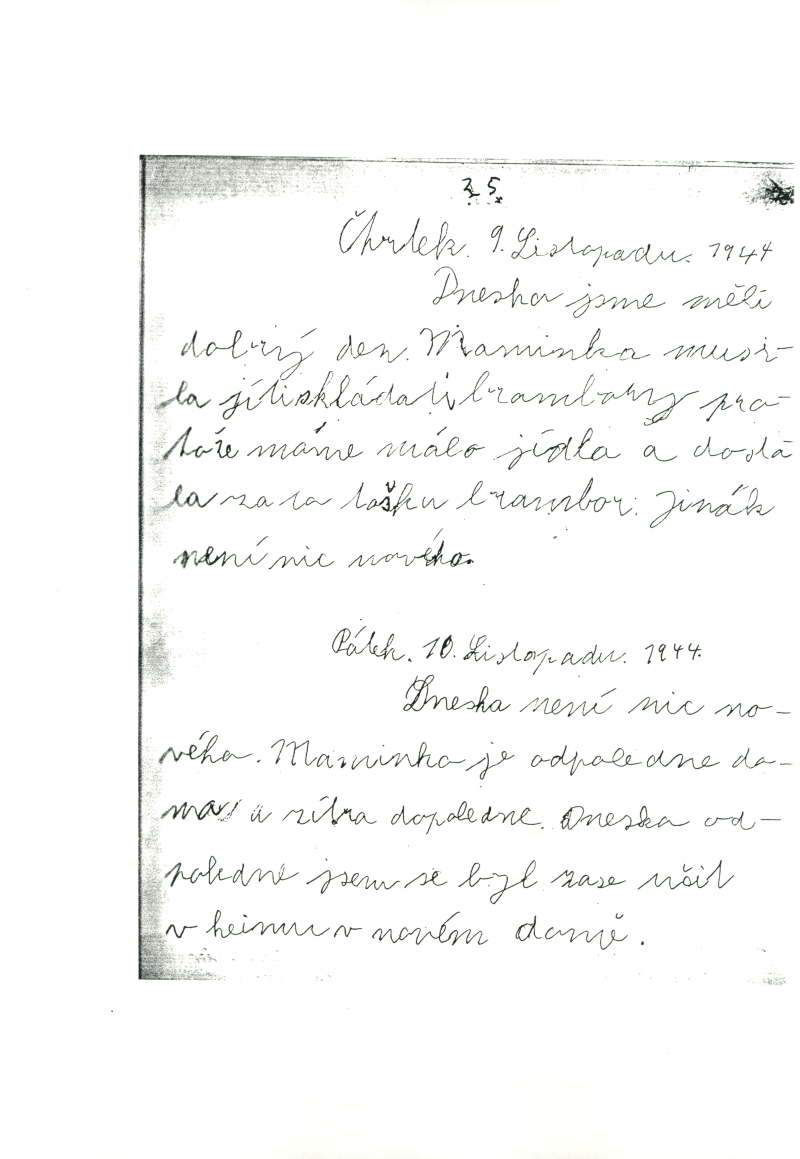 35.
Čtvrtek. 9. Listopadu. 1944
Dneska jsme měli
dobrý den. Maminka musi-
la jíti skládati brambory pro-
tože máme málo jídla a dosta
la za to tošku brambor. Jinák
není nic nového.
Pátek. 10. Listopadu. 1944.
Dneska není nic no-
vého. Maminka je odpoledne do-
ma a zítra dopoledne. Dneska od-
poledne jsem se byl zase učit
v heimu v novém domě.